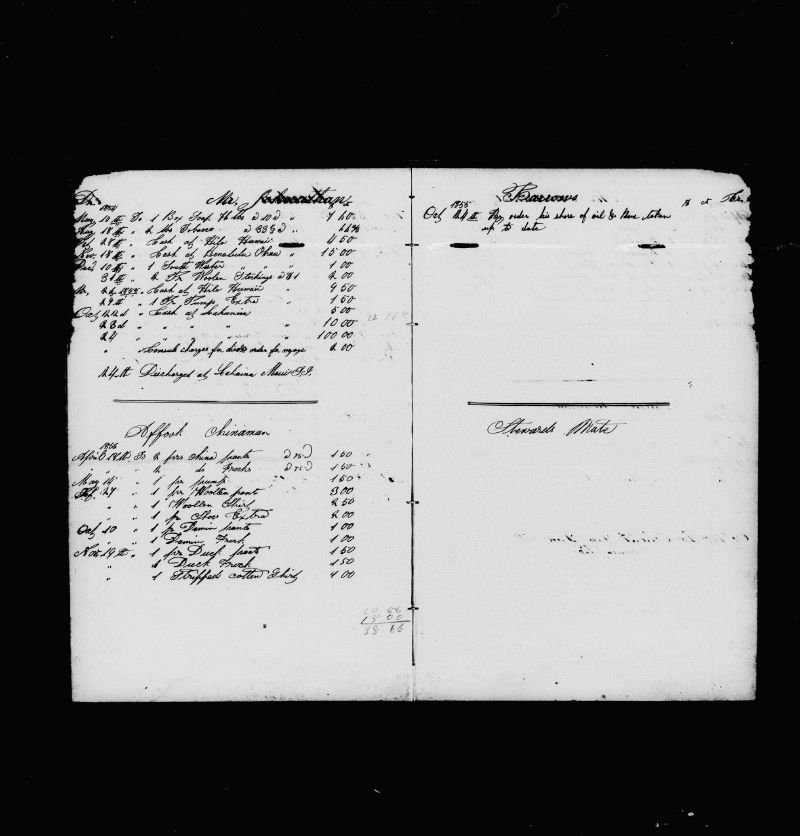 Dr. Mr. Johnnathan
1854
May 10th To 1 Box Soap
Aug 18th " 2 lbs Tobacco
" 28th " Cash at Hilo Hawaii 4 50
Nov. 18th " Cash at Honolulu Oahu 15 00
Decd 10th " 1 South Wester " " 1 00
31th " 2 Pr Woolen Stockings @ $1 2 00
" Cash at Hilo Hawaii 9 50
29th " 1 Pr Pumps Extra 1 50
Oct 22d " Cash at Lahaina 5 00
23d " " " " 10 00
24 " " " " 100 00
" Consuls charges for order for voyage 2 00
24th Discharged at Lahaina Maui S.I.
Affock Chinaman
1855
April 18th To 2 pair China pants @ 75 1 50
" " 2 do Frocks @ 75 1 50
May 14 " 1 pr pumps 1 50
27 " 1 pr Woolen pants 3 00
" " 1 Woolen Shirt 2 50
" " 1 pr Shoes Extra 2 00
Oct 10 " 1 pr Denim pants 1 00
" " 1 Denim Frock 1 00
Nov. 19th " 1 pr Duck pants 1 50
" 1 Duck Frock 1 50
" 1 Stripped cotton Shirt 1 00
18 00
38 66
Barrows Cr.
1855
Oct 24th By order his share of oil & bone taken
up to date
Stewards Mate